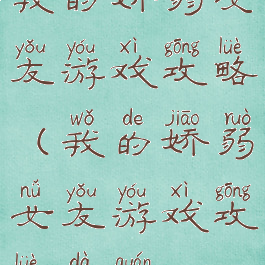 我的娇弱女
yǒu yóu xì gōng lüè
友游戏攻略
wǒ de jiāo ruò
（我的娇弱
nǚ yǒu yóu xì gōng
女友游戏攻
lüè dà quán